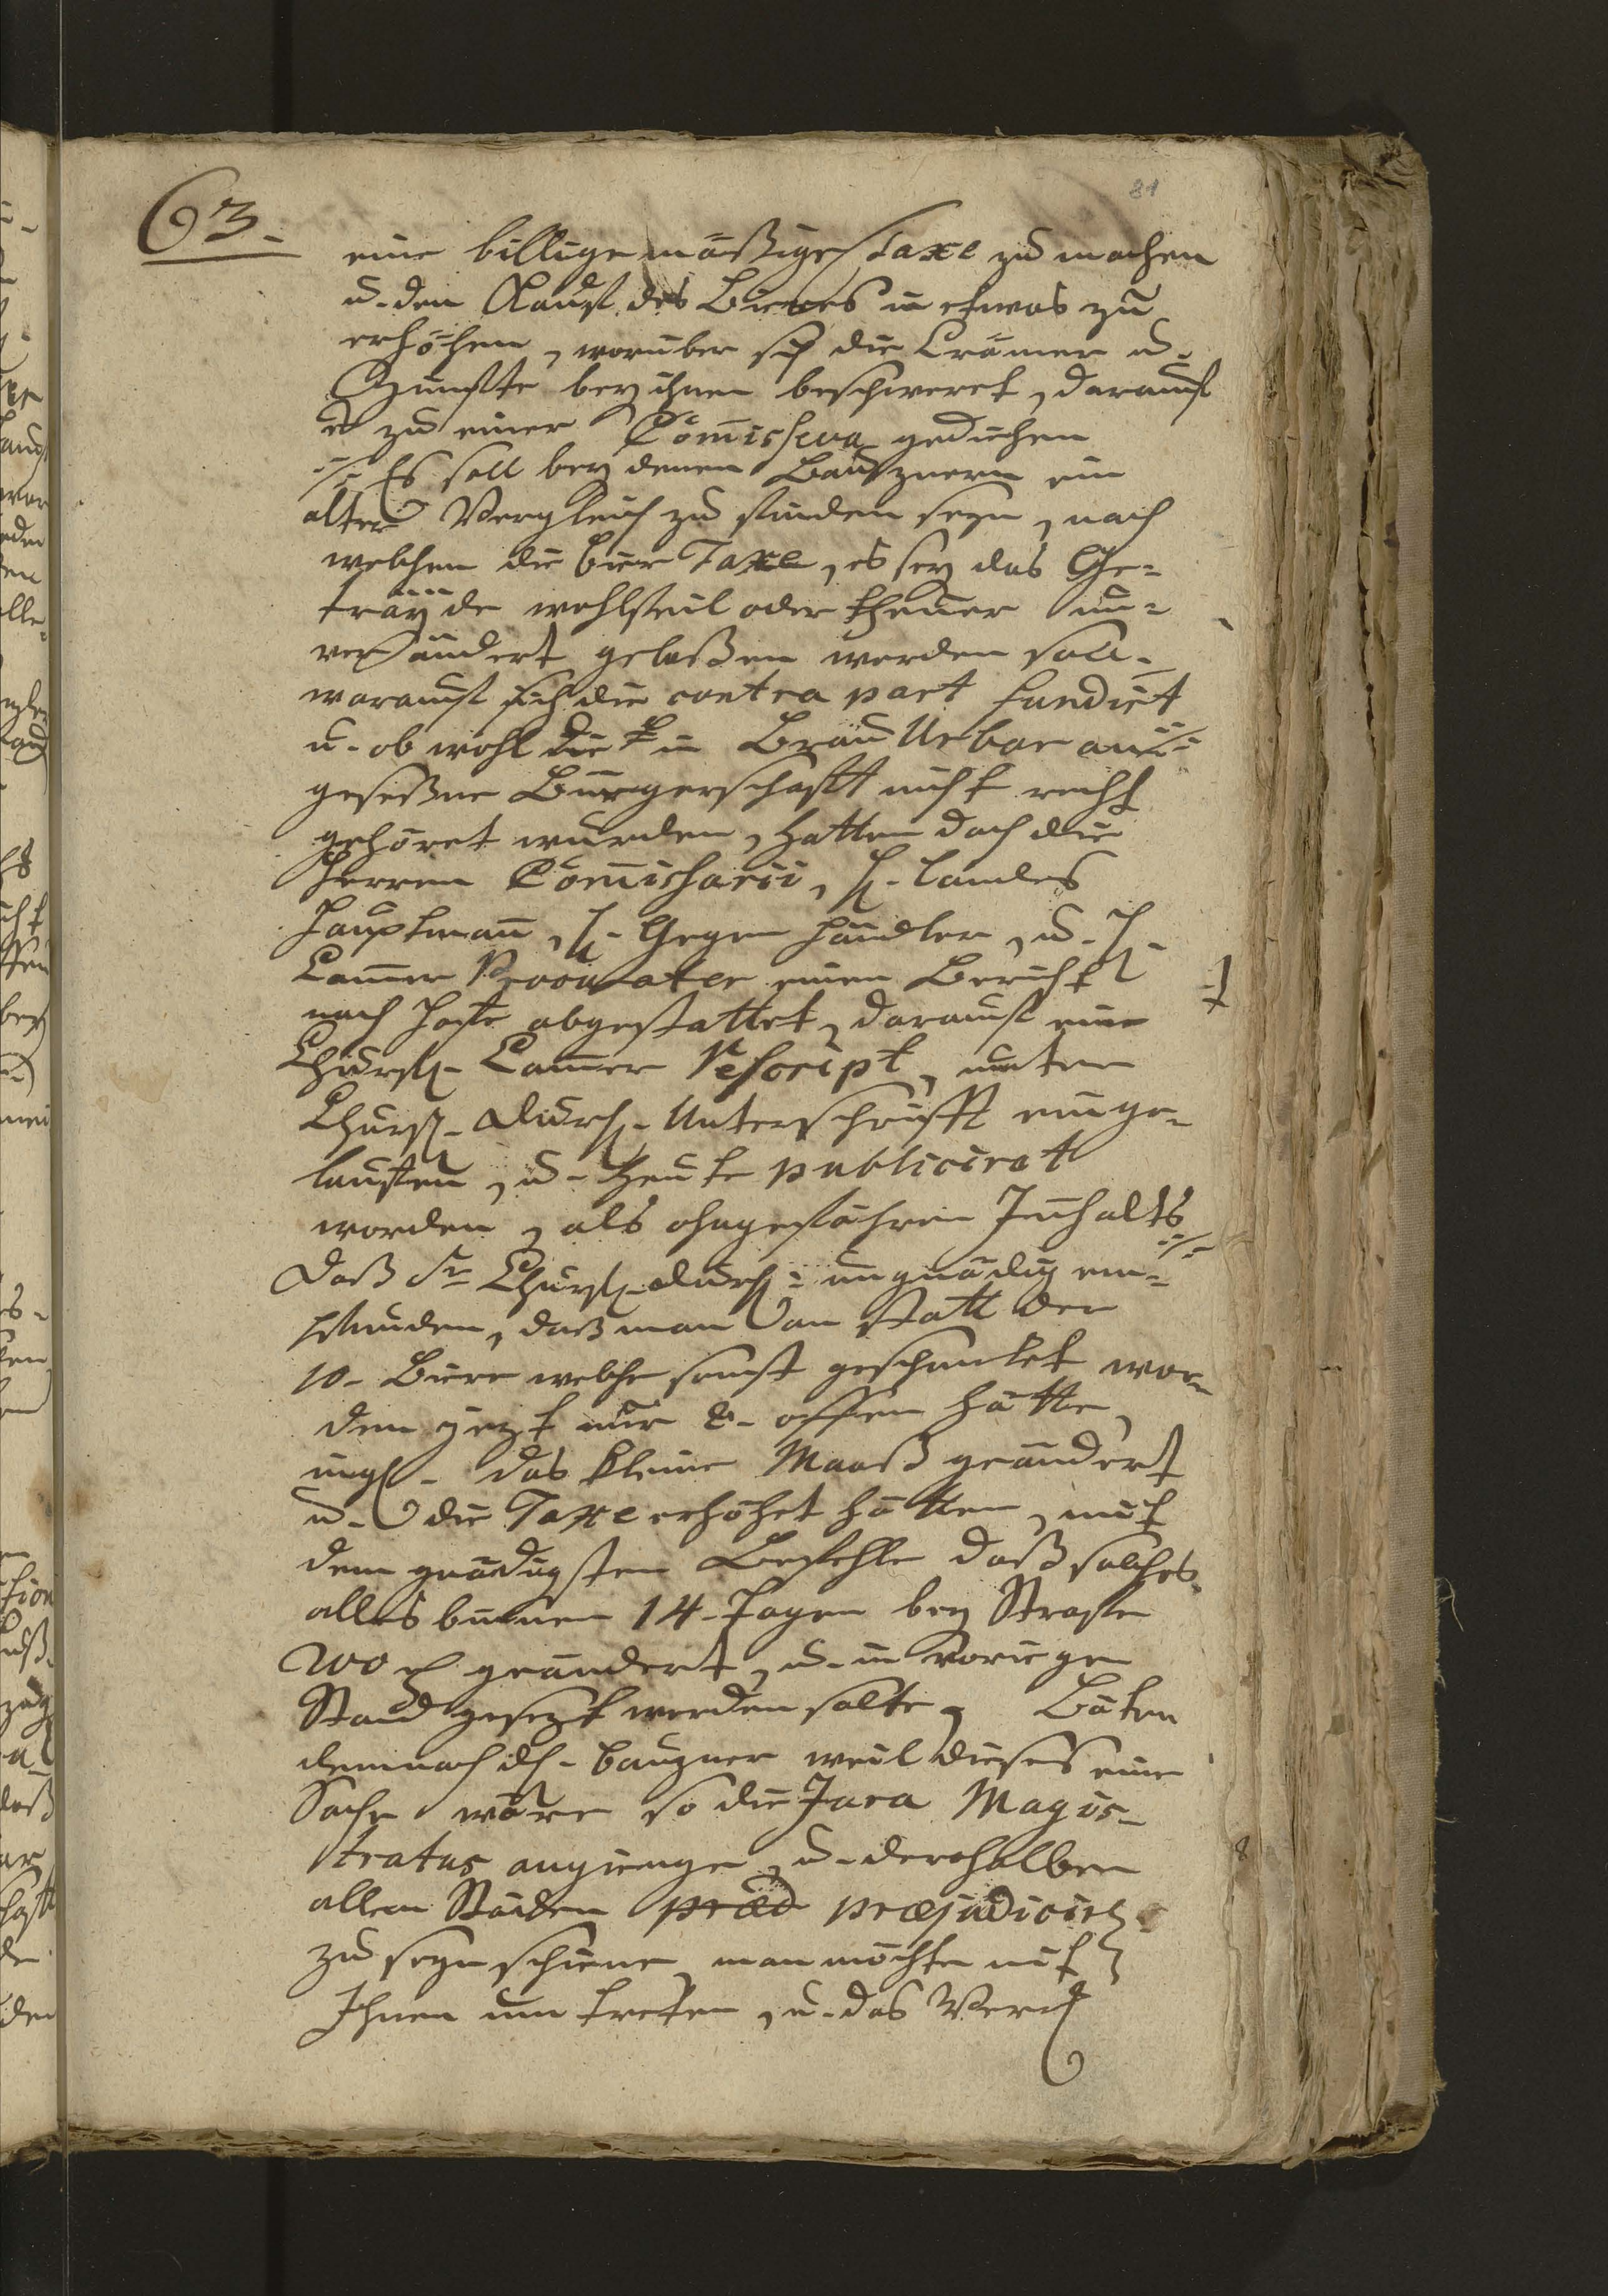 81
63.
eine billigmäßige Taxe zu machen
u. den Kauf des Bieres in etwas zu
erhöhen, worüber sich die Crämer u.
Zünffte bey ihnen beschweret, darauf
es zu einer Com̄ission gediehen
./. Es soll bey denen Bauznern ein
alter Vergleich zu finden seyn, nach
welchem die bier Taxe, es sey das Ge-
träyde wohlfeil oder theuer un-
verändert gelaßen werden soll.
worauf sich die contra part fundirt
u. ob wohl die in Brau Urbar an ./.
geseßene Bürgerschafft nicht recht
gehöret wurden, hatten doch die
Herren Com̄issarii, H. Landes
Hauptman̄, H. Gegen händler, u. H.
Cam̄er Procurator einen Bericht
nach Hofe abgestattet, darauf eine
Churfl. Cam̄er Rescript, unter
Churfl. Durchl. Unterschrifft einge-
lauffen, u. heute publiciret
worden, als ohngefähren Innhalts ./.
Daß Sr Churfl. Durchl. ungnädig em-
pfunden, daß man an statt der
10. Biere welche sonst geschenkt wor-
den jezt nur 8. offen hätte,
ingl. das kleine Maaß geändert
u. die Taxe erhöhet hätten, mit
dem gnädigsten Befehle daß solches
alles binnen 14. Tagen bey Strafe
geändert, u. in vorigen
Stand gesezt werden solte, Bäten
demnach die bauzner weil dieses eine
Sache wäre so die Jura Magis-
tratus angienge, u. derohalben
allen Städten præd præjudicirl.
zu seyn schiene, man möchte mit
Ihnen um treten, u. das Werck